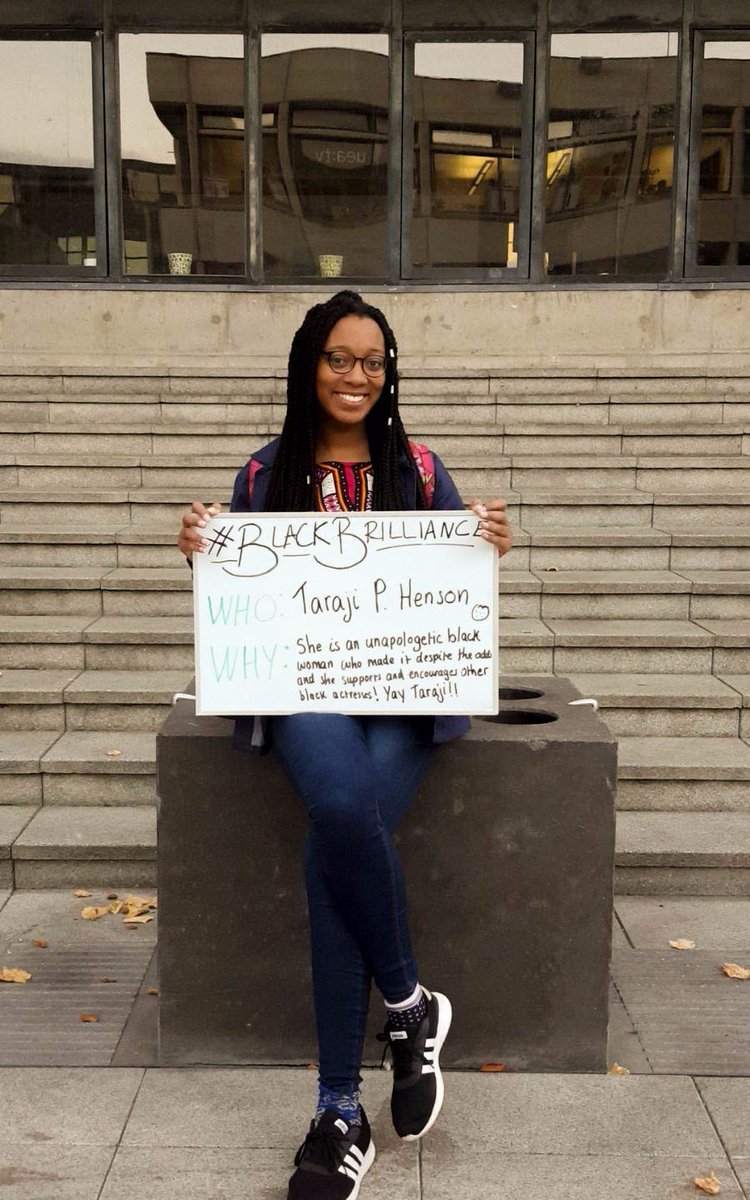 uea:tv
#BLACKBRILLIANCE
WHO: Taraji P. Henson
WHY: She is an unapologetic black
woman who made it despite the odds
and she supports and encourages other
black actresses! Yay Taraji!!!